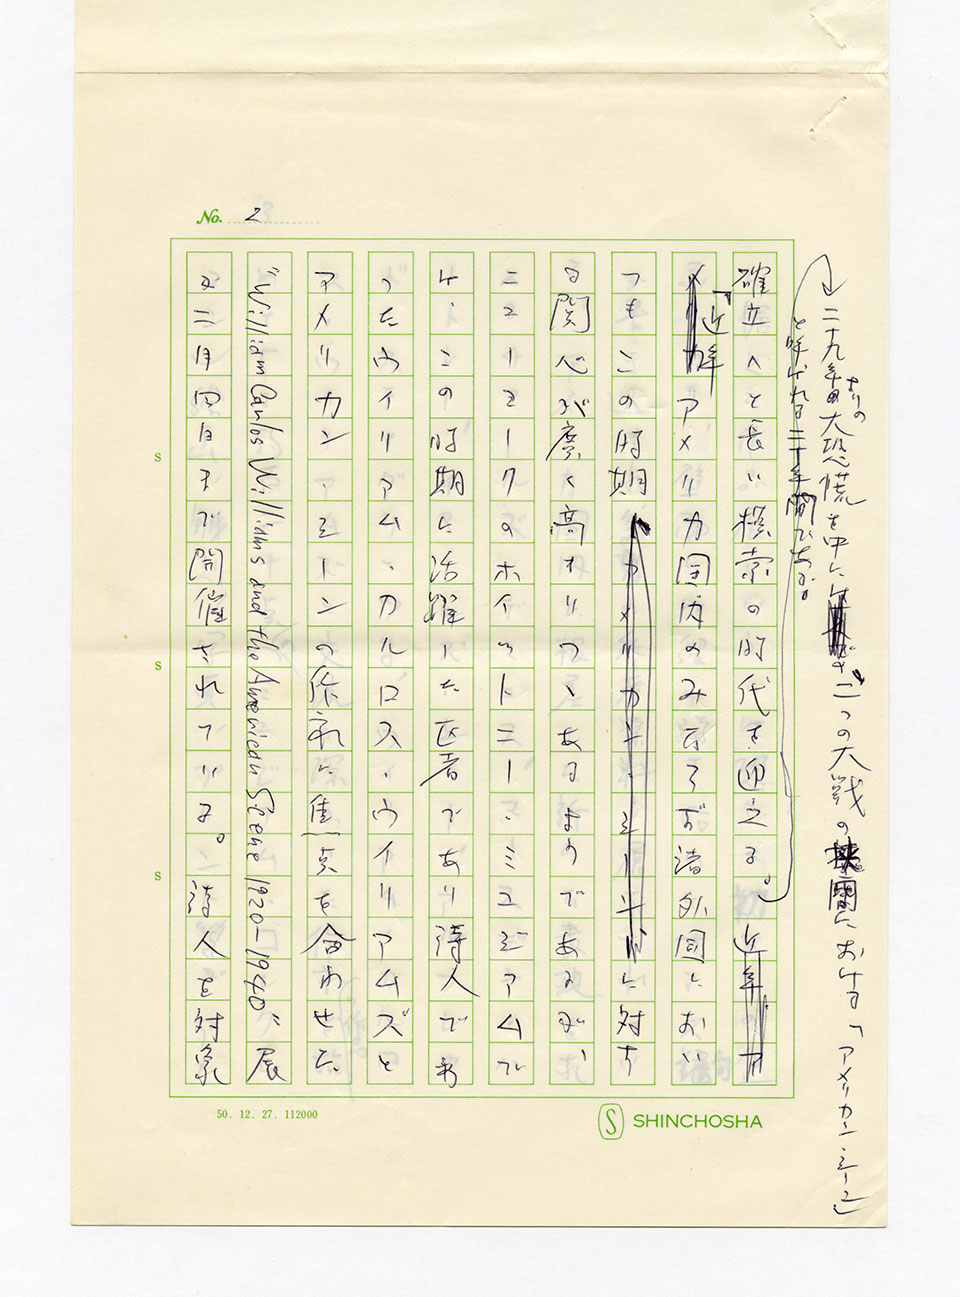 No. 2
二十九年の大恐慌を中にはさむ
二つの大戦の間における「アメリカンシーン」
と呼ばれる二十年間である。
確立へと長い模索の時代を迎える。近年
「近年アメリカ国内のみならず諸外国におい
てもこの時期アメリカンシーンに対す
る関心が度々高まりつゝあるようであるが、
ニューヨークのホイットニー・ミュジアムで
は、この時期に活躍した医者であり詩人であ
ったウイリアム・カルロス・ウイリアムズと
アメリカン・シーンの係わりに焦点を合わせた
"William Carlos Williams and the American Scene 1920–1940" 展
が二月四日まで開催されている。詩人を対象
S
S
S
50. 12. 27. 112000
S SHINCHOSHA